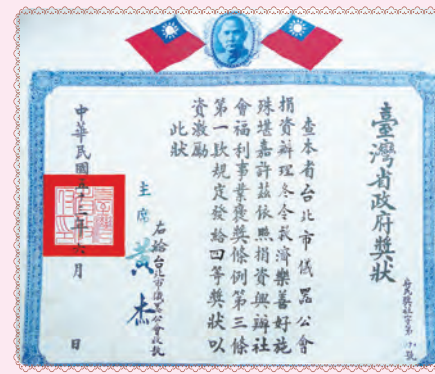 臺灣省政府獎狀
查本省台北市儀器公會
捐資辦理冬令救濟樂善好施
殊堪嘉許茲依照捐資興辦社
會福利事業獎條例第三條
第一款規定發給四等獎狀以
資激勵
此狀
右給台北市儀器公會收執
主席 黃杰
中華民國五十三年六月 日